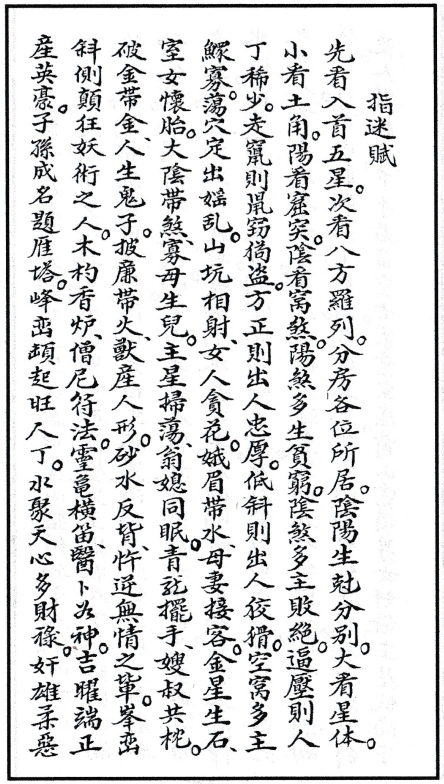 指迷賦
先看入首五星。次看八方羅列。分房各位所居。陰陽生尅分別。大看星体。
小看土角。陽看窟突。陰看窩煞。陽煞多生貧窮。陰煞多主敗絕。逼壓則人
丁稀少。走竄則鼠竊狗盜。方正則出人忠厚。低斜則出人佼猾。空窩多主
鰥寡。蕩穴定出婬乱。山坑相射、女人貪花。娥眉帶水、母妻接客。金星生石、
室女懷胎。大陰帶煞、寡母生兒。主星掃蕩、翁媳同眠。青龍擺手、嫂叔共枕。
破金帶金、人生鬼子。披廉帶火、獸産人形。砂水反背、忤逆無情之輩。峯巒
斜側顛狂妖術之人。木杓香炉、僧尼符法。靈龜橫笛、醫卜如神。吉曜端正
産英豪。子孫成名題雁塔。峰巒頓起旺人丁。水聚天心多財祿。奸雄柔惡